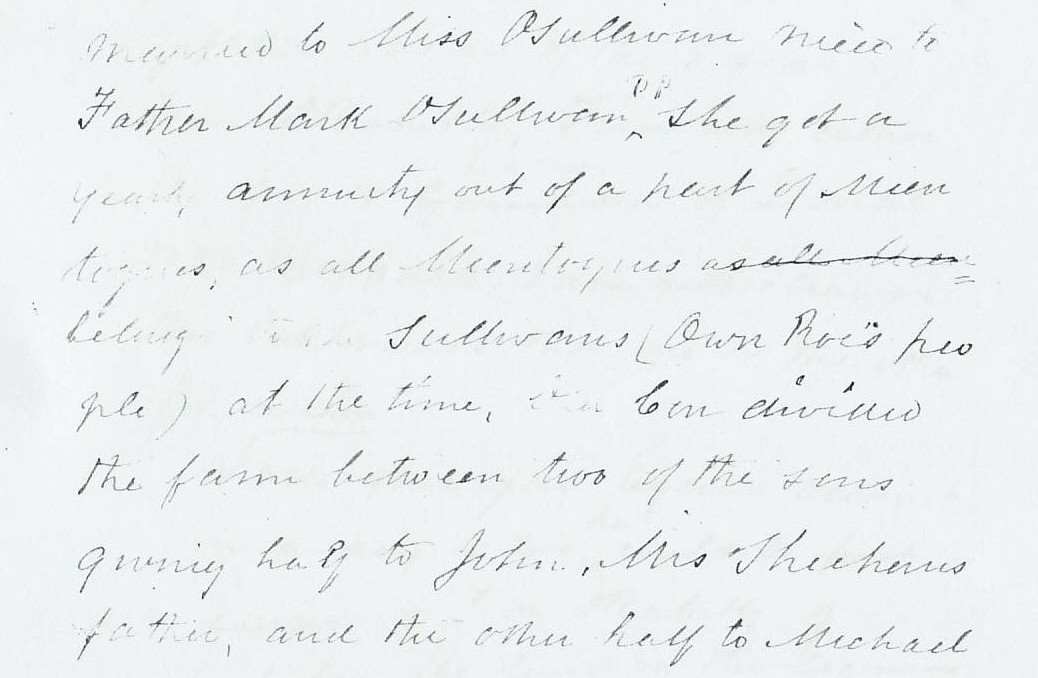 married to Miss OSullivan niece to
Father Mark OSullivan PP She got a
yearly annuity out of a part of Mien
togues, as all Mientogues as all Mien
belong Sullivans (Own Roe's peo
ple) at the time, Con divided
the farm between two of the sons
giving half to John, Mrs Sheehans
father, and the other half to Michael